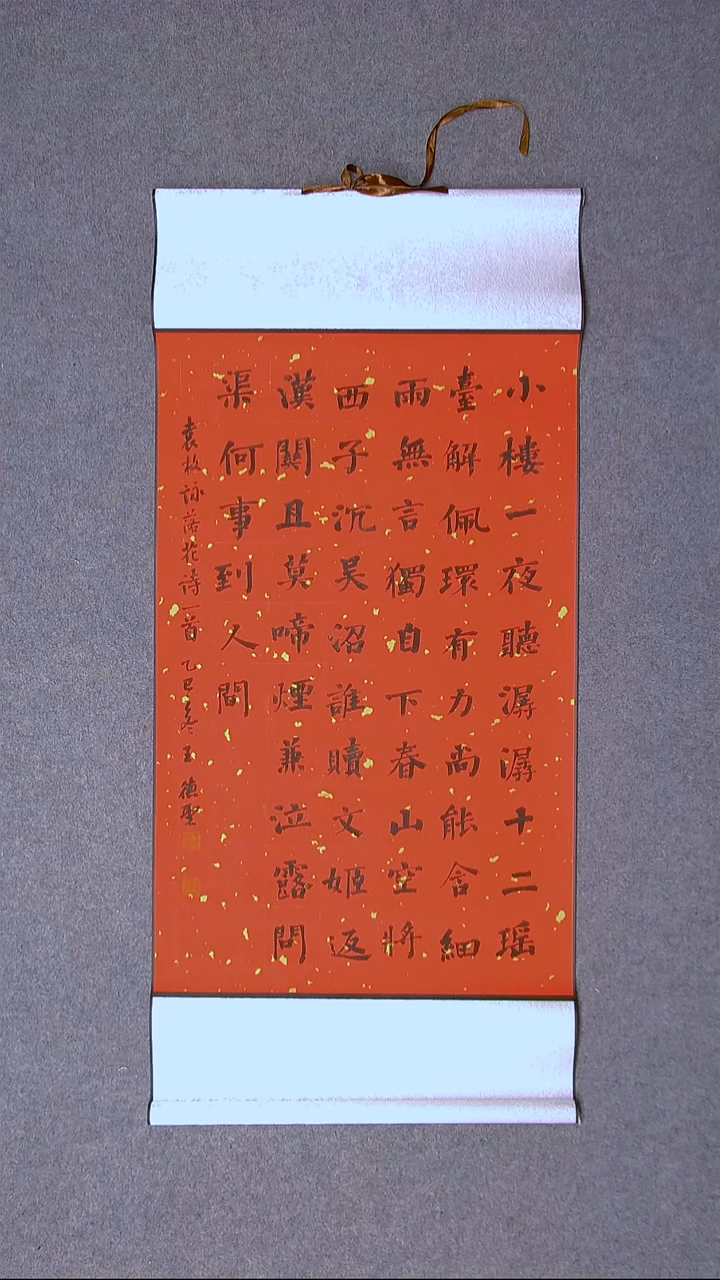 小樓一夜聽潺潺十二瑶
臺解佩環有力尚能含細
雨無言獨自下春山空將
西子沉吴沼誰贖文姬返
漢關且莫啼煙兼泣露問
渠何事到人間
袁枚詠落花詩一首 乙巳冬 王德聖